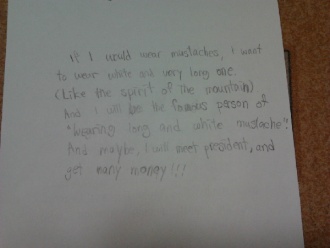 If I would wear mustaches, I want
to wear white and very long one.
(Like the spirit of the mountain)
And I will be the famous person of
"wearing long and white mustache"
And maybe, I will meet president, and
get many money!!!